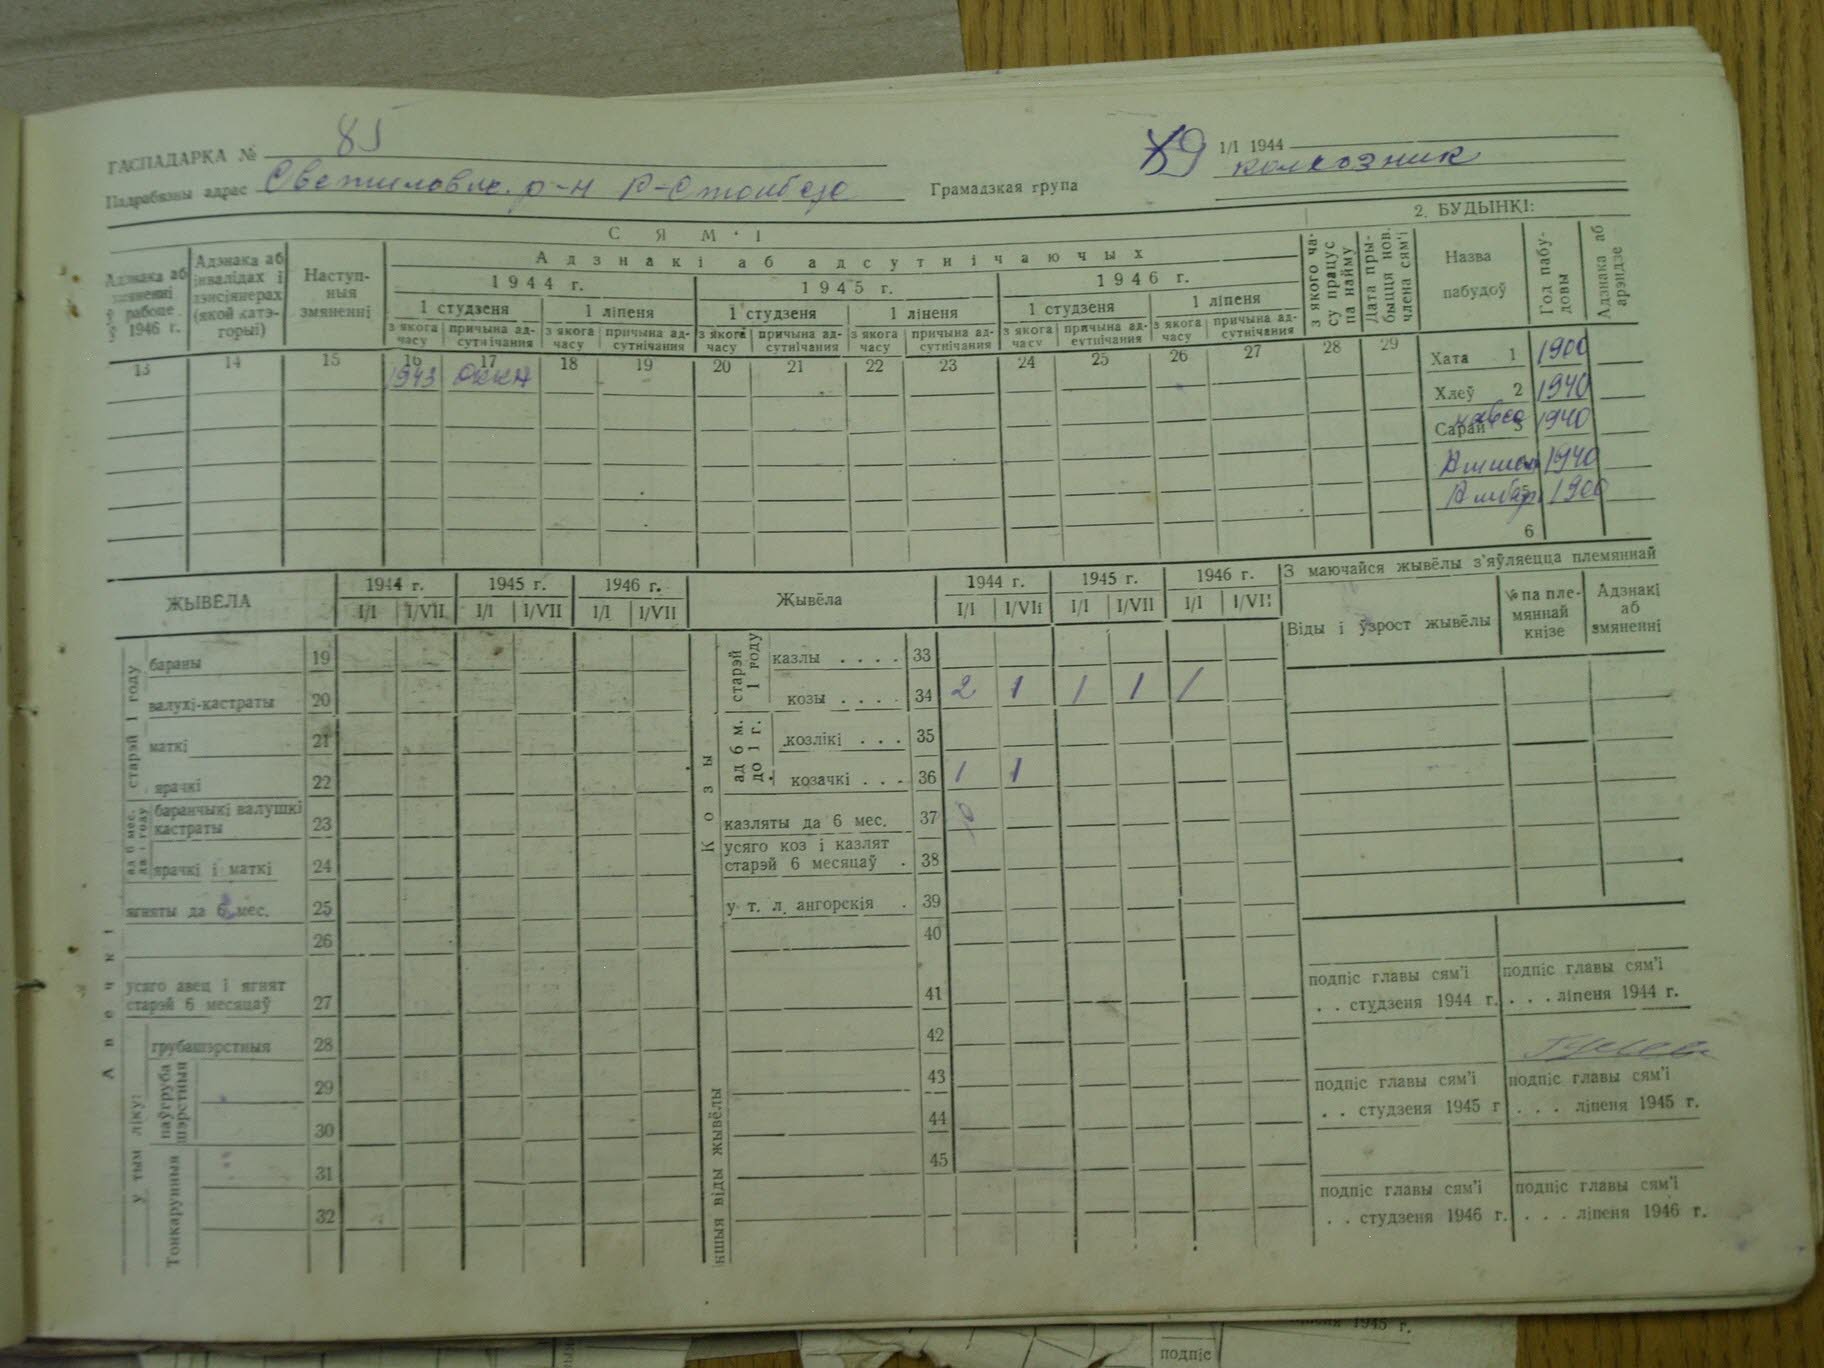 ГАСПАДАРКА № 85
89 1/I 1944
Падрабязны адрас Светиловис. р-н
Грамадзкая група колхозник
СЯМ'І
2. БУДЫНКІ:
Адзнака аб змяненні ў рабоце ў 1946 г.
Адзнака аб інвалідах і пэнсіянерах (якой катэгорыі)
Наступныя змяненні
Адзнакі аб адсутнічаючых
1944 г. 1945 г. 1946 г.
1 студзеня 1 ліпеня 1 студзеня 1 ліпеня 1 студзеня 1 ліпеня
з якога часу прычына адсутнічання з якога часу прычына адсутнічання з якога часу прычына адсутнічання з якога часу прычына адсутнічання з якога часу прычына адсутнічання з якога часу прычына адсутнічання
з якога часу працуе па найму
Дата прыбыцця нов. члена сям'і
Назва пабудоў
Год пабудовы
Адзнака аб арэндзе
13 14 15 16 17 18 19 20 21 22 23 24 25 26 27 28 29
1943 РККА
Хата 1 1900
Хлеў 2 1940
Сарай 3 1940
1940
Амбар 5 1900
6
ЖЫВЁЛА 1944 г. 1945 г. 1946 г.
I/I I/VII I/I I/VII I/I I/VII
Авечкі
старэй 1 году
бараны 19
валухі-кастраты 20
маткі 21
ярачкі 22
ад 6 мес. да 1 году
баранчыкі валушкі кастраты 23
ярачкі і маткі 24
ягняты да 6 мес. 25
26
усяго авец і ягнят старэй 6 месяцаў 27
у тым ліку:
грубашэрстныя 28
паўгруба шэрстныя 29
30
Тонкарунныя 31
32
Жывёла 1944 г. 1945 г. 1946 г.
I/I I/VII I/I I/VII I/I I/VII
Козы
старэй 1 году
казлы . . . . 33
козы . . . . 34 2 1 1 1 1
ад 6 м. до 1 г.
козлікі . . . 35
козачкі . . . 36 1 1
казляты да 6 мес. 37
усяго коз і казлят
старэй 6 месяцаў . 38
у т. л. ангорскія . 39
40
41
42
43
44
45
ншыя віды жывёлы
З маючайся жывёлы з'яўляецца племяннай
Віды і ўзрост жывёлы
№ па племяннай кнізе
Адзнакі аб змяненні
подпіс главы сям'і подпіс главы сям'і
. . студзеня 1944 г. . . . ліпеня 1944 г.
подпіс главы сям'і подпіс главы сям'і
. . студзеня 1945 г . . . ліпеня 1945 г.
подпіс главы сям'і подпіс главы сям'і
. . студзеня 1946 г. . . . ліпеня 1946 г.
1945 г.
подпіс